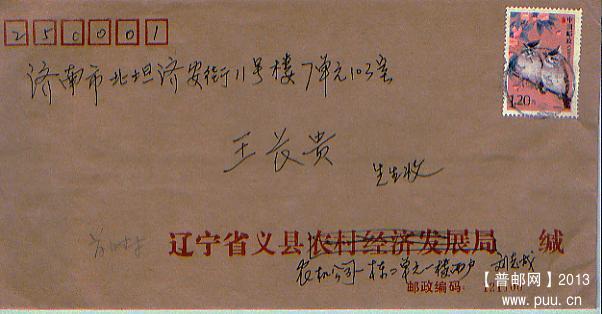 250001
中国邮政
1.20元
济南市北坦济安街11号楼7单元103室
王长贵
先生收
辽宁省义县农村经济发展局 缄
农机公司一栋二单元一楼西户 刘志成
邮政编码: 121100
【普邮网】2013
www.puu.cn